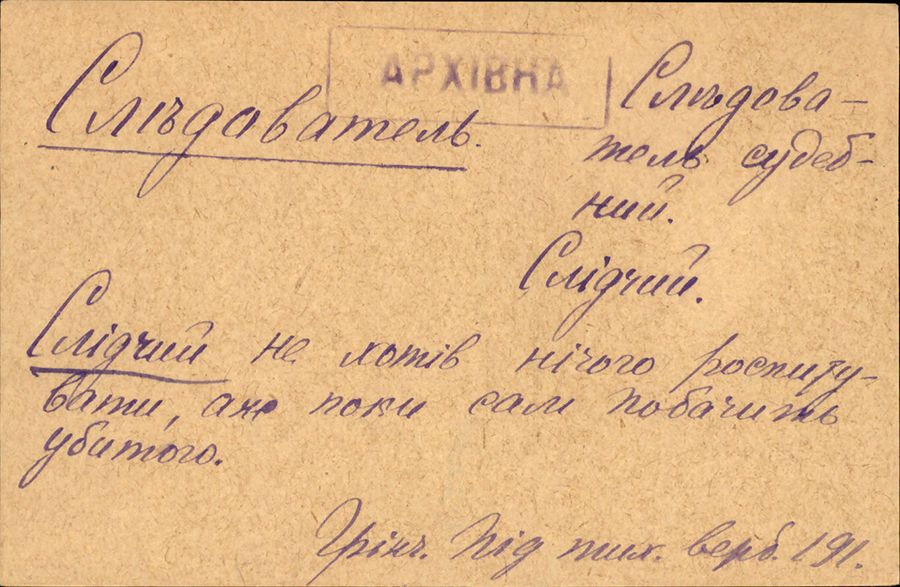 АРХІВНА
Слѣдователь.
Слѣдова-
тель судеб-
ний.
Слідчий.
Слідчий не хотів нічого роспиту-
вати, аж поки сам побачить
убитого.
Грінч. Під тих. верб. 191.